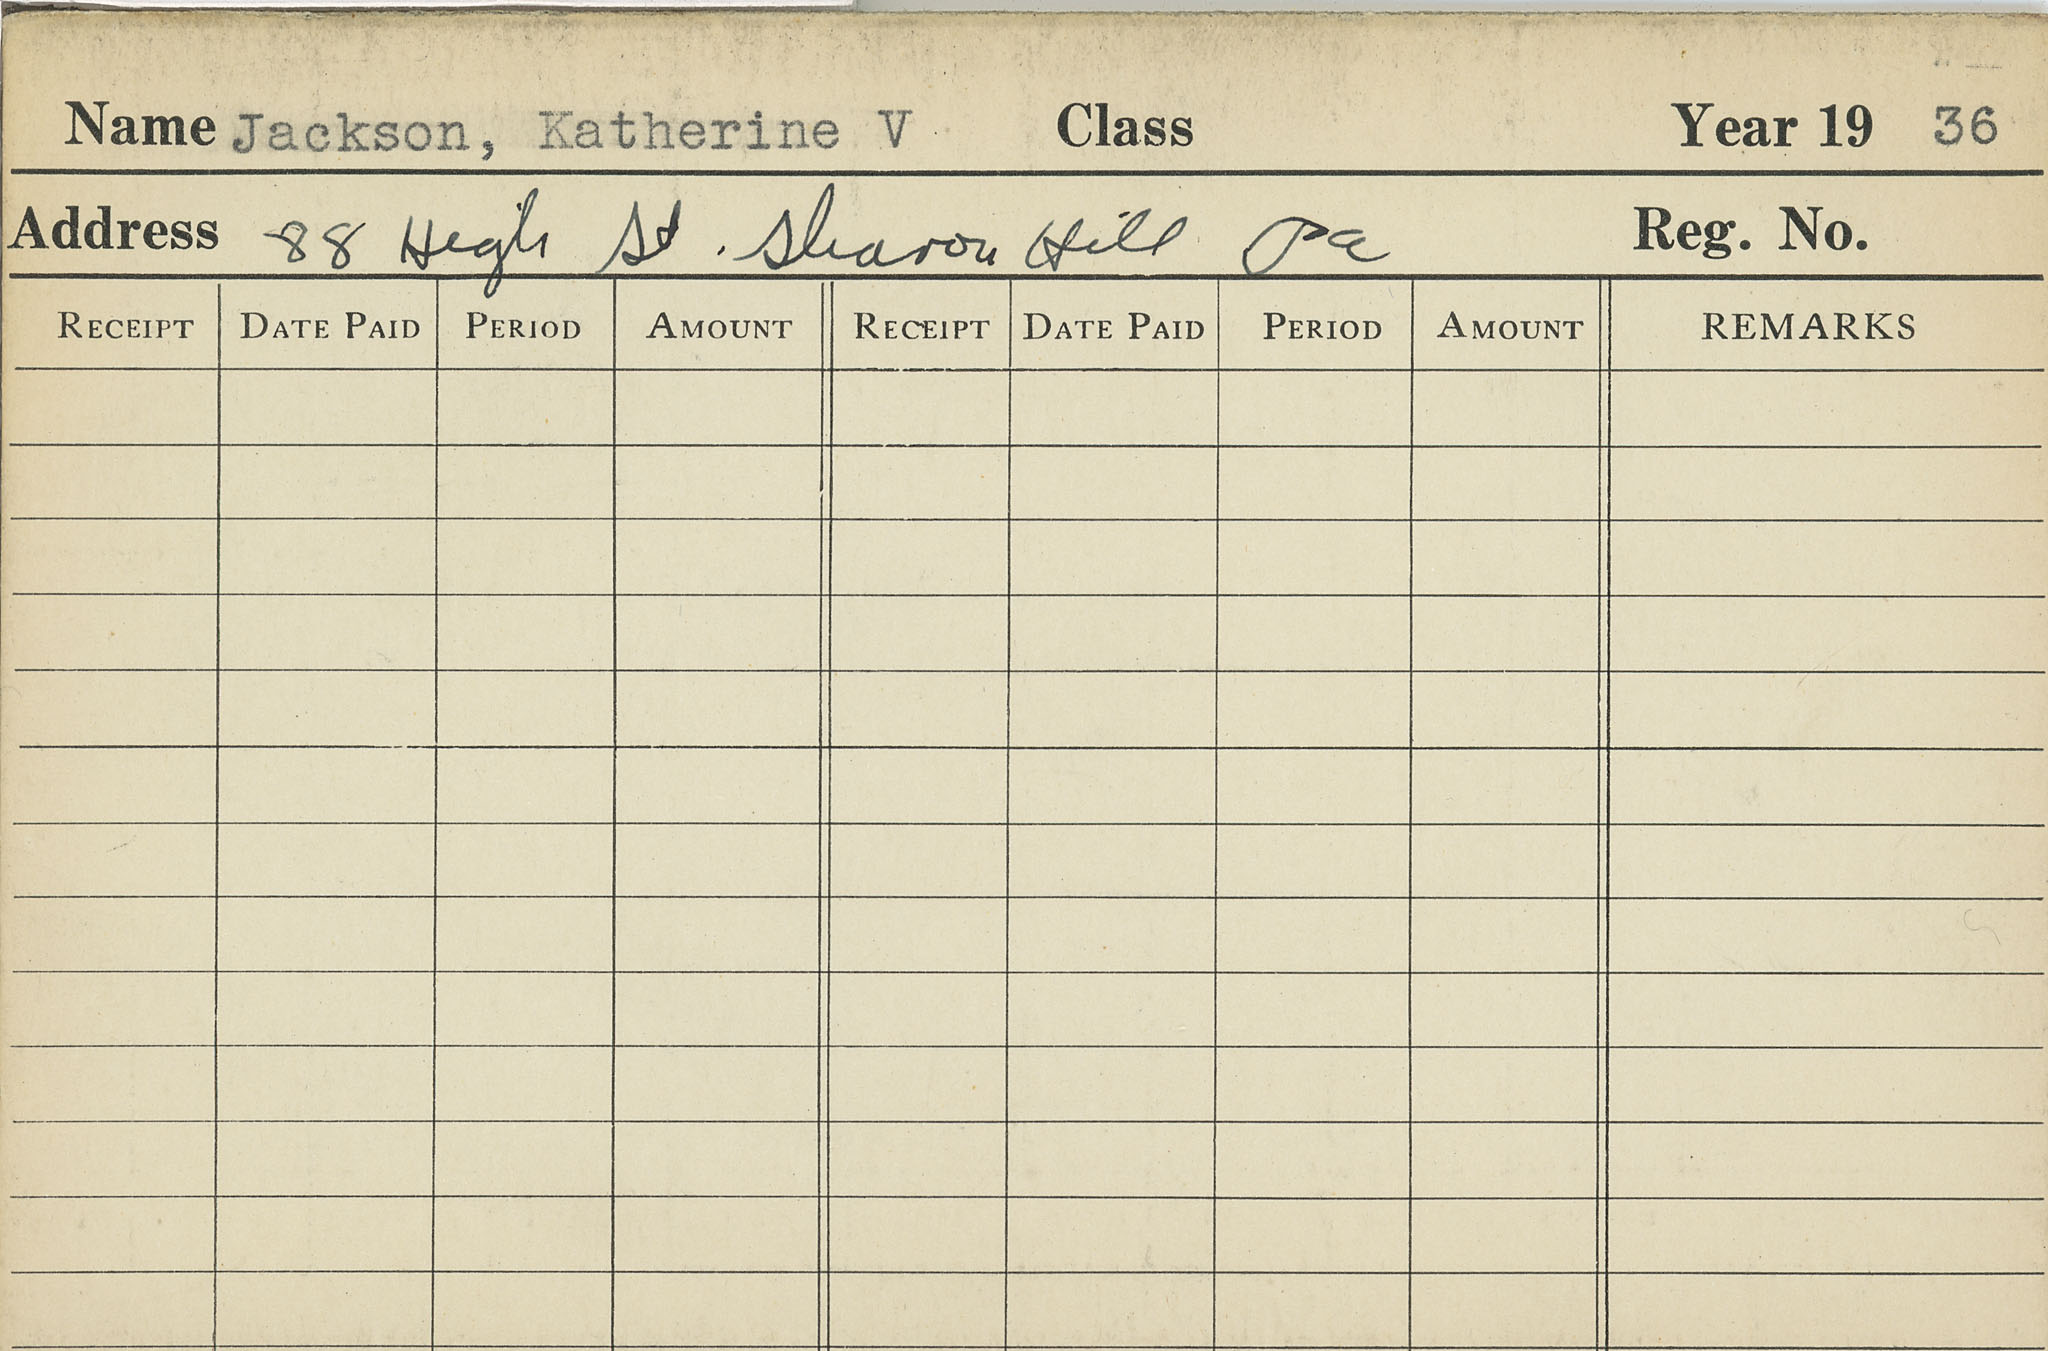 Name Jackson, Katherine V Class Year 19 36
Address 88 High St. Sharon Hill Pa Reg. No.
RECEIPT DATE PAID PERIOD AMOUNT RECEIPT DATE PAID PERIOD AMOUNT REMARKS